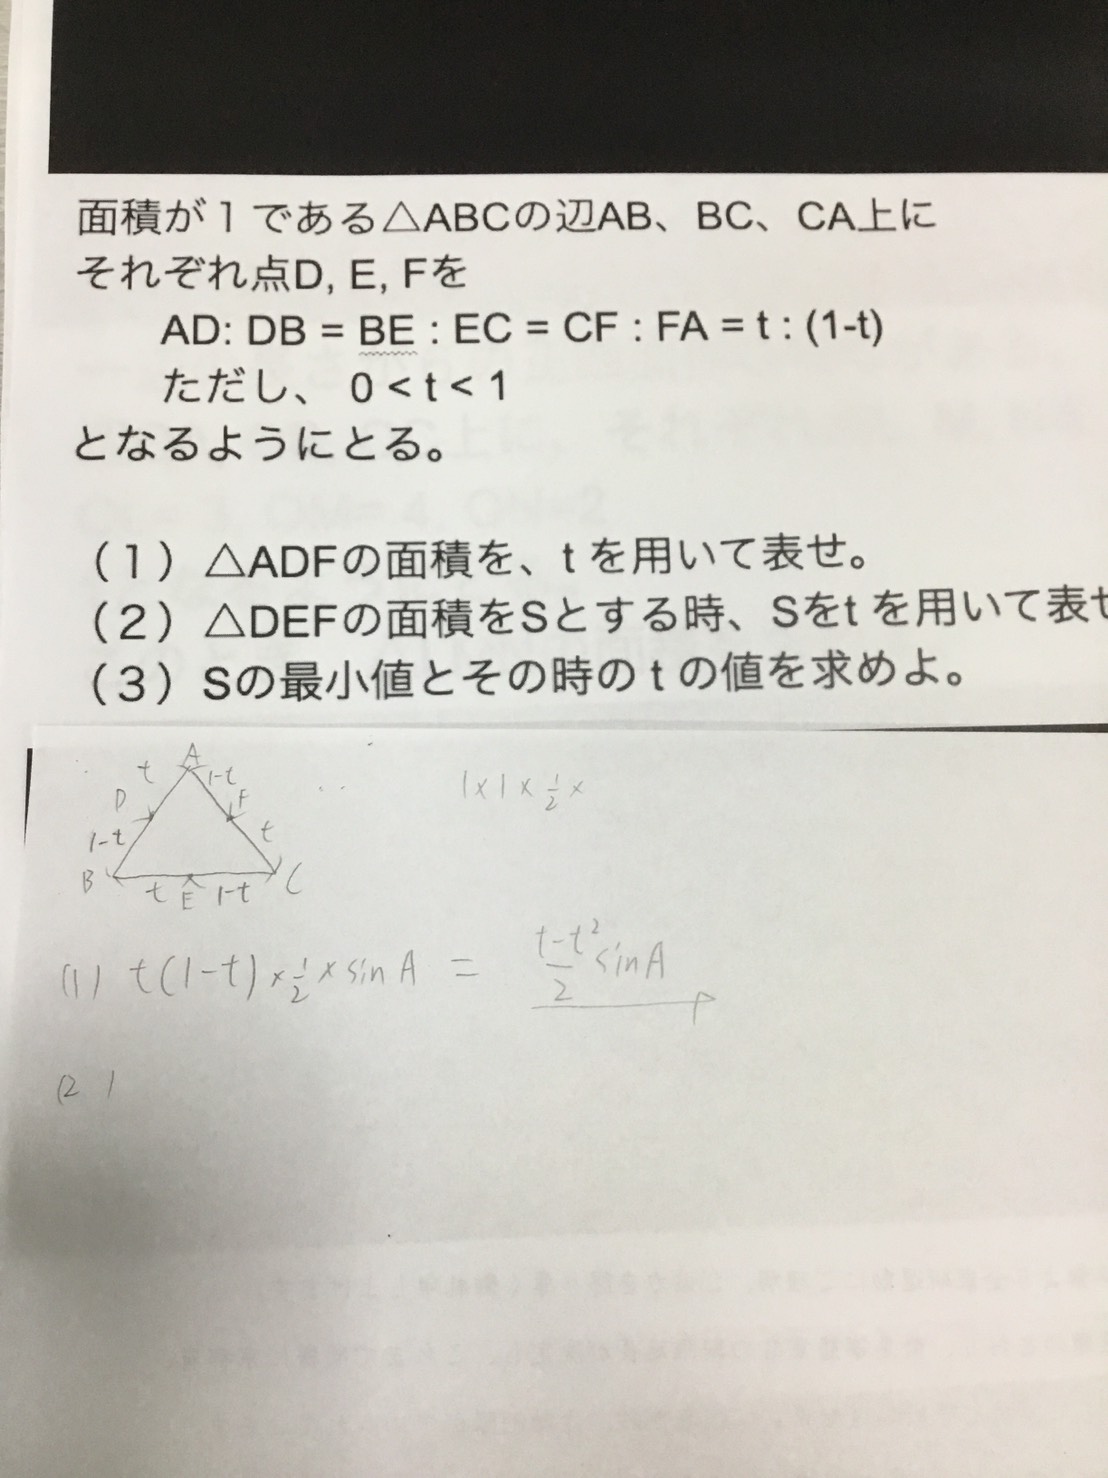 面積が1である△ABCの辺AB、BC、CA上に
それぞれ点D, E, Fを
AD: DB = BE : EC = CF : FA = t : (1-t)
ただし、 0 < t < 1
となるようにとる。
(1) △ADFの面積を、t を用いて表せ。
(2) △DEFの面積をSとする時、Sをt を用いて表せ
(3) Sの最小値とその時の t の値を求めよ。
A
t 1-t
D F
1-t t
B C
t E 1-t
1×1×1/2×
(1) t(1-t)×1/2×sin A = (t-t²)/2 sin A
(2)